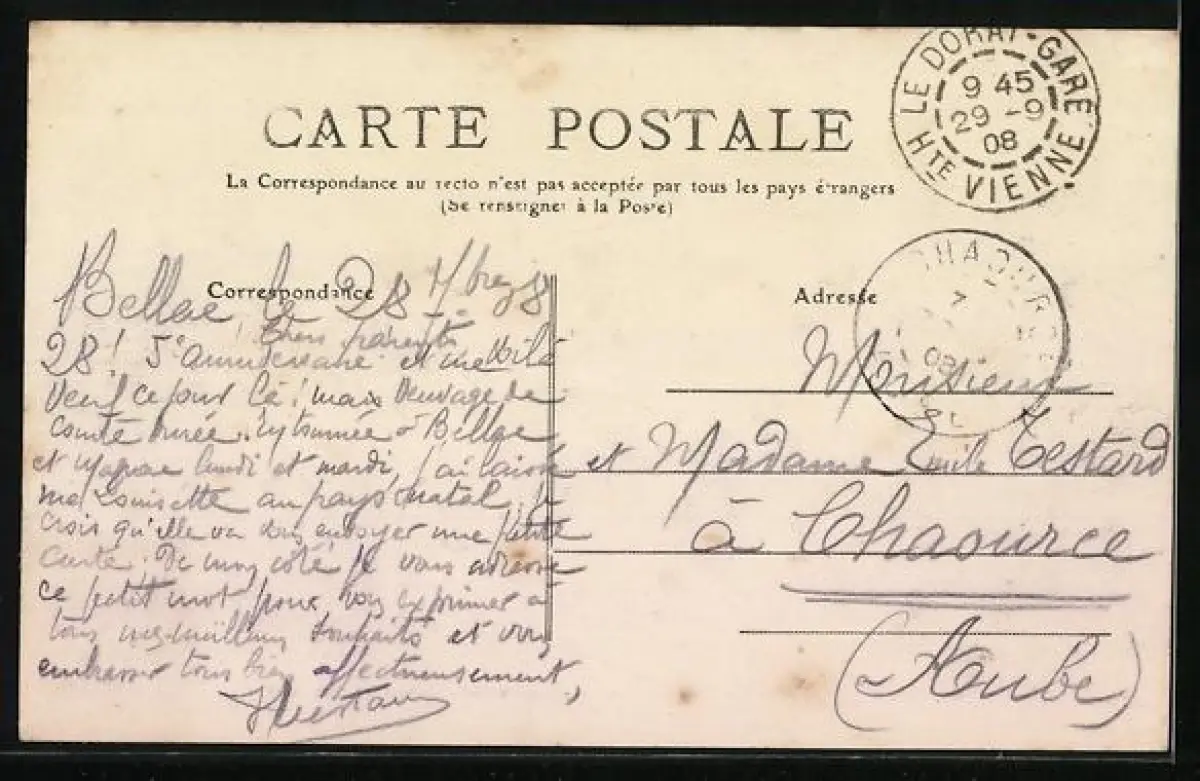 CARTE POSTALE
La Correspondance au recto n'est pas acceptée par tous les pays étrangers
(Se renseigner à la Poste)
LE DORAT-GARE
9 45
29 -9
08
HTE VIENNE
CHAOURCE
08
Correspondance
Adresse
Bellac le 28 7bre 8
Chers parents
28! 5e anniversaire et me voilà
veuf ce jour là! mais veuvage de
courte durée. En tournée à Bellac
et Magnac lundi et mardi, j'ai laissé
ma Louisette au pays natal. Je
crois qu'elle va vous envoyer une petite
carte. De mon côté je vous adresse
ce petit mot pour vous exprimer à
tous mes meilleurs souhaits et vous
embrasser tous bien affectueusement,
Monsieur
et Madame Emile Testard
à Chaource
(Aube)